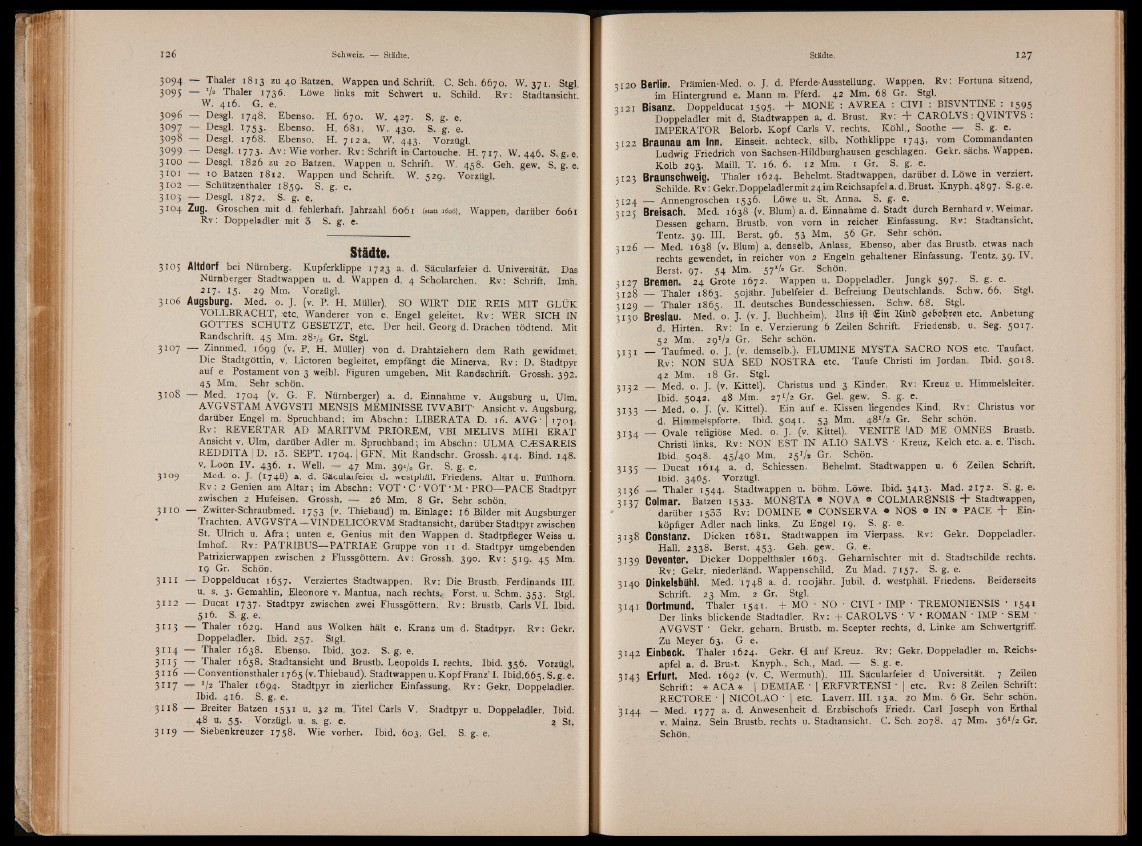 126
Schweiz. — Städte.
3094 — Thaler 1813 zu 40 Batzen. Wappen und Schrift. C. Sch. 6670. W. 371. Stgl.
3095 — ½ Thaler 1736. Löwe links mit Schwert u. Schild. Rv: Stadtansicht.
W. 416. G. e.
3096 — Desgl. 1748. Ebenso. H. 670. W. 427. S. g. e.
3097 — Desgl. 1753. Ebenso. H. 681. W. 430. S. g. e.
3098 — Desgl. 1768. Ebenso. H. 712 a. W. 443. Vorzügl.
3099 — Desgl. 1773. Av: Wie vorher. Rv: Schrift in Cartouche. H. 717. W. 446. S. g. e.
3100 — Desgl. 1826 zu 20 Batzen. Wappen u. Schrift. W. 458. Geh. gew. S. g. e.
3101 — 10 Batzen 1812. Wappen und Schrift. W. 529. Vorzügl.
3102 — Schützenthaler 1859. S. g. e.
3103 — Desgl. 1872. S. g. e.
3104 Zug. Groschen mit d. fehlerhaft. Jahrzahl 6061 (statt 1606). Wappen, darüber 6061
Rv: Doppeladler mit 3 S. g. e.
Städte.
3105 Altdorf bei Nürnberg. Kupferklippe 1723 a. d. Säcularfeier d. Universität. Das
Nürnberger Stadtwappen u. d. Wappen d. 4 Scholarchen. Rv: Schrift. Imh.
217. 15. 29 Mm. Vorzügl.
3106 Augsburg. Med. o. J. (v. P. H. Müller). SO WIRT DIE REIS MIT GLÜK
VOLLBRACHT, etc. Wanderer von e. Engel geleitet. Rv: WER SICH IN
GOTTES SCHUTZ GESETZT, etc. Der heil. Georg d. Drachen tödtend. Mit
Randschrift. 45 Mm. 28½ Gr. Stgl.
3107 — Zinnmed. 1699 (v. P. H. Müller) von d. Drahtziehern dem Rath gewidmet.
Die Stadtgöttin, v. Lictoren begleitet, empfängt die Minerva. Rv: D. Stadtpyr
auf e. Postament von 3 weibl. Figuren umgeben. Mit Randschrift. Grossh. 392.
45 Mm. Sehr schön.
3108 — Med. 1704 (v. G. F. Nürnberger) a. d. Einnahme v. Augsburg u. Ulm.
AVGVSTAM AVGVSTI MENSIS MEMINISSE IVVABIT· Ansicht v. Augsburg,
darüber Engel m. Spruchband; im Abschn: LIBERATA D. 16. AVG· | 1704.
Rv: REVERTAR AD MARITVM PRIOREM, VBI MELIVS MIHI ERAT
Ansicht v. Ulm, darüber Adler m. Spruchband; im Abschn: ULMA CÆSAREIS
REDDITA | D. 13. SEPT. 1704. | GFN. Mit Randschr. Grossh. 414. Bind. 148.
v. Loon IV. 436. 1. Well. — 47 Mm. 39½ Gr. S. g. e.
3109 — Med. o. J. (1748) a. d. Säcularfeier d. westphäl. Friedens. Altar u. Füllhorn.
Rv: 2 Genien am Altar; im Abschn: VOT · C · VOT · M · PRO—PACE Stadtpyr
zwischen 2 Hufeisen. Grossh. — 26 Mm. 8 Gr. Sehr schön.
3110 — Zwitter-Schraubmed. 1753 (v. Thiebaud) m. Einlage: 16 Bilder mit Augsburger
Trachten. AVGVSTA—VINDELICORVM Stadtansicht, darüber Stadtpyr zwischen
St. Ulrich u. Afra; unten e. Genius mit den Wappen d. Stadtpfleger Weiss u.
Imhof. Rv: PATRIBUS—PATRIAE Gruppe von 11 d. Stadtpyr umgebenden
Patrizierwappen zwischen 2 Flussgöttern. Av: Grossh. 390. Rv: 519. 45 Mm.
19 Gr. Schön.
3111 — Doppelducat 1657. Verziertes Stadtwappen. Rv: Die Brustb. Ferdinands III.
u. s. 3. Gemahlin, Eleonore v. Mantua, nach rechts. Forst. u. Schm. 353. Stgl.
3112 — Ducat 1737. Stadtpyr zwischen zwei Flussgöttern. Rv: Brustb. Carls VI. Ibid.
516. S. g. e.
3113 — Thaler 1629. Hand aus Wolken hält e. Kranz um d. Stadtpyr. Rv: Gekr.
Doppeladler. Ibid. 257. Stgl.
3114 — Thaler 1638. Ebenso. Ibid. 302. S. g. e.
3115 — Thaler 1658. Stadtansicht und Brustb. Leopolds I. rechts. Ibid. 356. Vorzügl.
3116 — Conventionsthaler 1765 (v. Thiebaud). Stadtwappen u. Kopf Franz' I. Ibid. 665. S. g. e.
3117 — ½ Thaler 1694. Stadtpyr in zierlicher Einfassung. Rv: Gekr. Doppeladler.
Ibid. 416. S. g. e.
3118 — Breiter Batzen 1531 u. 32 m. Titel Carls V. Stadtpyr u. Doppeladler. Ibid.
48 u. 55. Vorzügl. u. s. g. e. 2 St.
3119 — Siebenkreuzer 1758. Wie vorher. Ibid. 603. Gel. S. g. e.
Städte.
127
3120 Berlin. Prämien-Med. o. J. d. Pferde-Ausstellung. Wappen. Rv: Fortuna sitzend,
im Hintergrund e. Mann m. Pferd. 42 Mm. 68 Gr. Stgl.
3121 Bisanz. Doppelducat 1595. + MONE : AVREA : CIVI : BISVNTINE : 1595
Doppeladler mit d. Stadtwappen a. d. Brust. Rv: + CAROLVS : QVINTVS :
IMPERATOR Belorb. Kopf Carls V. rechts. Köhl., Soothe — S. g. e.
3122 Braunau am Inn. Einseit. achteck. silb. Nothklippe 1743, vom Commandanten
Ludwig Friedrich von Sachsen-Hildburghausen geschlagen. Gekr. sächs. Wappen.
Kolb 293. Maill. T. 16. 6. 12 Mm. 1 Gr. S. g. e.
3123 Braunschweig. Thaler 1624. Behelmt. Stadtwappen, darüber d. Löwe in verziert.
Schilde. Rv: Gekr. Doppeladler mit 24 im Reichsapfel a. d. Brust. Knyph. 4897. S. g. e.
3124 — Annengroschen 1536. Löwe u. St. Anna. S. g. e.
3125 Breisach. Med. 1638 (v. Blum) a. d. Einnahme d. Stadt durch Bernhard v. Weimar.
Dessen geharn. Brustb. von vorn in reicher Einfassung. Rv: Stadtansicht.
Tentz. 39. III. Berst. 96. 53 Mm. 56 Gr. Sehr schön.
3126 — Med. 1638 (v. Blum) a. denselb. Anlass. Ebenso, aber das Brustb. etwas nach
rechts gewendet, in reicher von 2 Engeln gehaltener Einfassung. Tentz. 39. IV.
Berst. 97. 54 Mm. 57½ Gr. Schön.
3127 Bremen. 24 Grote 1672. Wappen u. Doppeladler. Jungk 597. S. g. e.
3128 — Thaler 1863. 50jähr. Jubelfeier d. Befreiung Deutschlands. Schw. 66. Stgl.
3129 — Thaler 1865. II. deutsches Bundesschiessen. Schw. 68. Stgl.
3130 Breslau. Med. o. J. (v. J. Buchheim). Uns ist Ein Kind gebohren etc. Anbetung
d. Hirten. Rv: In e. Verzierung 6 Zeilen Schrift. Friedensb. u. Seg. 5017.
52 Mm. 29½ Gr. Sehr schön.
3131 — Taufmed. o. J. (v. demselb.). FLUMINE MYSTA SACRO NOS etc. Taufact.
Rv: NON SUA SED NOSTRA etc. Taufe Christi im Jordan. Ibid. 5018.
42 Mm. 18 Gr. Stgl.
3132 — Med. o. J. (v. Kittel). Christus und 3 Kinder. Rv: Kreuz u. Himmelsleiter.
Ibid. 5042. 48 Mm. 27½ Gr. Gel. gew. S. g. e.
3133 — Med. o. J. (v. Kittel). Ein auf e. Kissen liegendes Kind. Rv: Christus vor
d. Himmelspforte. Ibid. 5041. 53 Mm. 48½ Gr. Sehr schön.
3134 — Ovale religiöse Med. o. J. (v. Kittel). VENITE !AD ME OMNES Brustb.
Christi links. Rv: NON EST IN ALIO SALVS · Kreuz, Kelch etc. a. e. Tisch.
Ibid. 5048. 45/40 Mm. 25½ Gr. Schön.
3135 — Ducat 1614 a. d. Schiessen. Behelmt. Stadtwappen u. 6 Zeilen Schrift.
Ibid. 3465. Vorzügl.
3136 — Thaler 1544. Stadtwappen u. böhm. Löwe. Ibid. 3413. Mad. 2172. S. g. e.
3137 Colmar. Batzen 1533. MONETA • NOVA • COLMARENSIS + Stadtwappen,
darüber 1533 Rv: DOMINE • CONSERVA • NOS • IN • PACE + Ein-
köpfiger Adler nach links. Zu Engel 19. S. g. e.
3138 Constanz. Dicken 1681. Stadtwappen im Vierpass. Rv: Gekr. Doppeladler.
Hall. 2338. Berst. 453. Geh. gew. G. e.
3139 Deventer. Dicker Doppelthaler 1663. Geharnischter mit d. Stadtschilde rechts.
Rv: Gekr. niederländ. Wappenschild. Zu Mad. 7157. S. g. e.
3140 Dinkelsbühl. Med. 1748 a. d. 100jähr. Jubil. d. westphäl. Friedens. Beiderseits
Schrift. 23 Mm. 2 Gr. Stgl.
3141 Dortmund. Thaler 1541. + MO · NO · CIVI · IMP · TREMONIENSIS · 1541
Der links blickende Stadtadler. Rv: + CAROLVS · V · ROMAN · IMP · SEM ·
AVGVST · Gekr. geharn. Brustb. m. Scepter rechts, d. Linke am Schwertgriff.
Zu Meyer 63. G e.
3142 Einbeck. Thaler 1624. Gekr. E auf Kreuz. Rv: Gekr. Doppeladler m. Reichs-
apfel a. d. Brust. Knyph., Sch., Mad. — S. g. e.
3143 Erfurt. Med. 1692 (v. C. Wermuth). III. Säcularfeier d Universität. 7 Zeilen
Schrift: * ACA * | DEMIAE · | ERFVRTENSI · | etc. Rv: 8 Zeilen Schrift:
RECTORE · | NICOLAO · | etc. Laverr. III. 13a. 20 Mm. 6 Gr. Sehr schön.
3144 — Med. 1777 a. d. Anwesenheit d. Erzbischofs Friedr. Carl Joseph von Erthal
v. Mainz. Sein Brustb. rechts u. Stadtansicht. C. Sch. 2078. 47 Mm. 36½ Gr.
Schön.